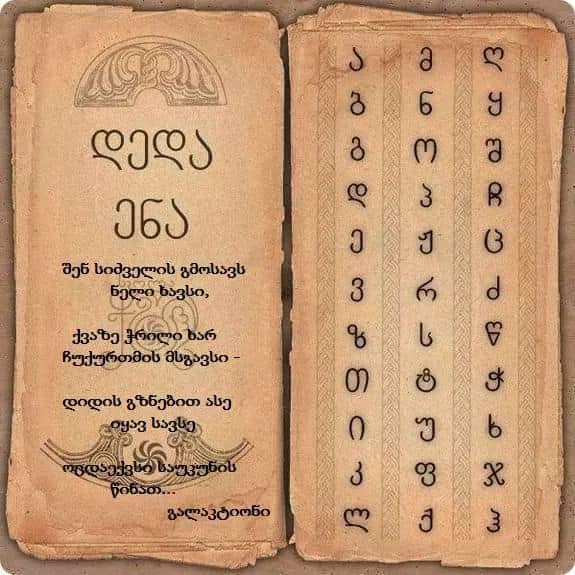 დედა
ენა
შენ სიძველის გმოსავს
ნელი ხავსი,
ქვაზე ჭრილი ხარ
ჩუქურთმის მსგავსი -
დიდის გზნებით ასე
იყავ სავსე
ოცდაექვსი საუკუნის
წინათ...
გალაკტიონი
ა მ ღ
ბ ნ ყ
გ ო შ
დ პ ჩ
ე ჟ ც
ვ რ ძ
ზ ს წ
თ ტ ჭ
ი უ ხ
კ ფ ჯ
ლ ქ ჰ